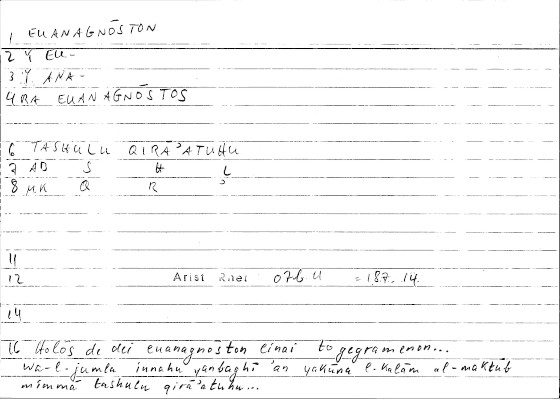 1 EUANAGNŌSTON
2 Y EU-
3 Y ANA-
4 RA EUANAGNŌSTOS
6 TASHULU QIRĀʾATUHU
7 AD S H L
8 MK Q R ʾ
11
12 Arist Rhet 07b 11 = 187.14.
14
16 Holōs de dei euanagnōston einai to gegramenon...
wa-l-jumla innahu yanbaghī ʾan yakūna l-kalām al-maktūb
mimmā tashulu qirāʾatuhu...